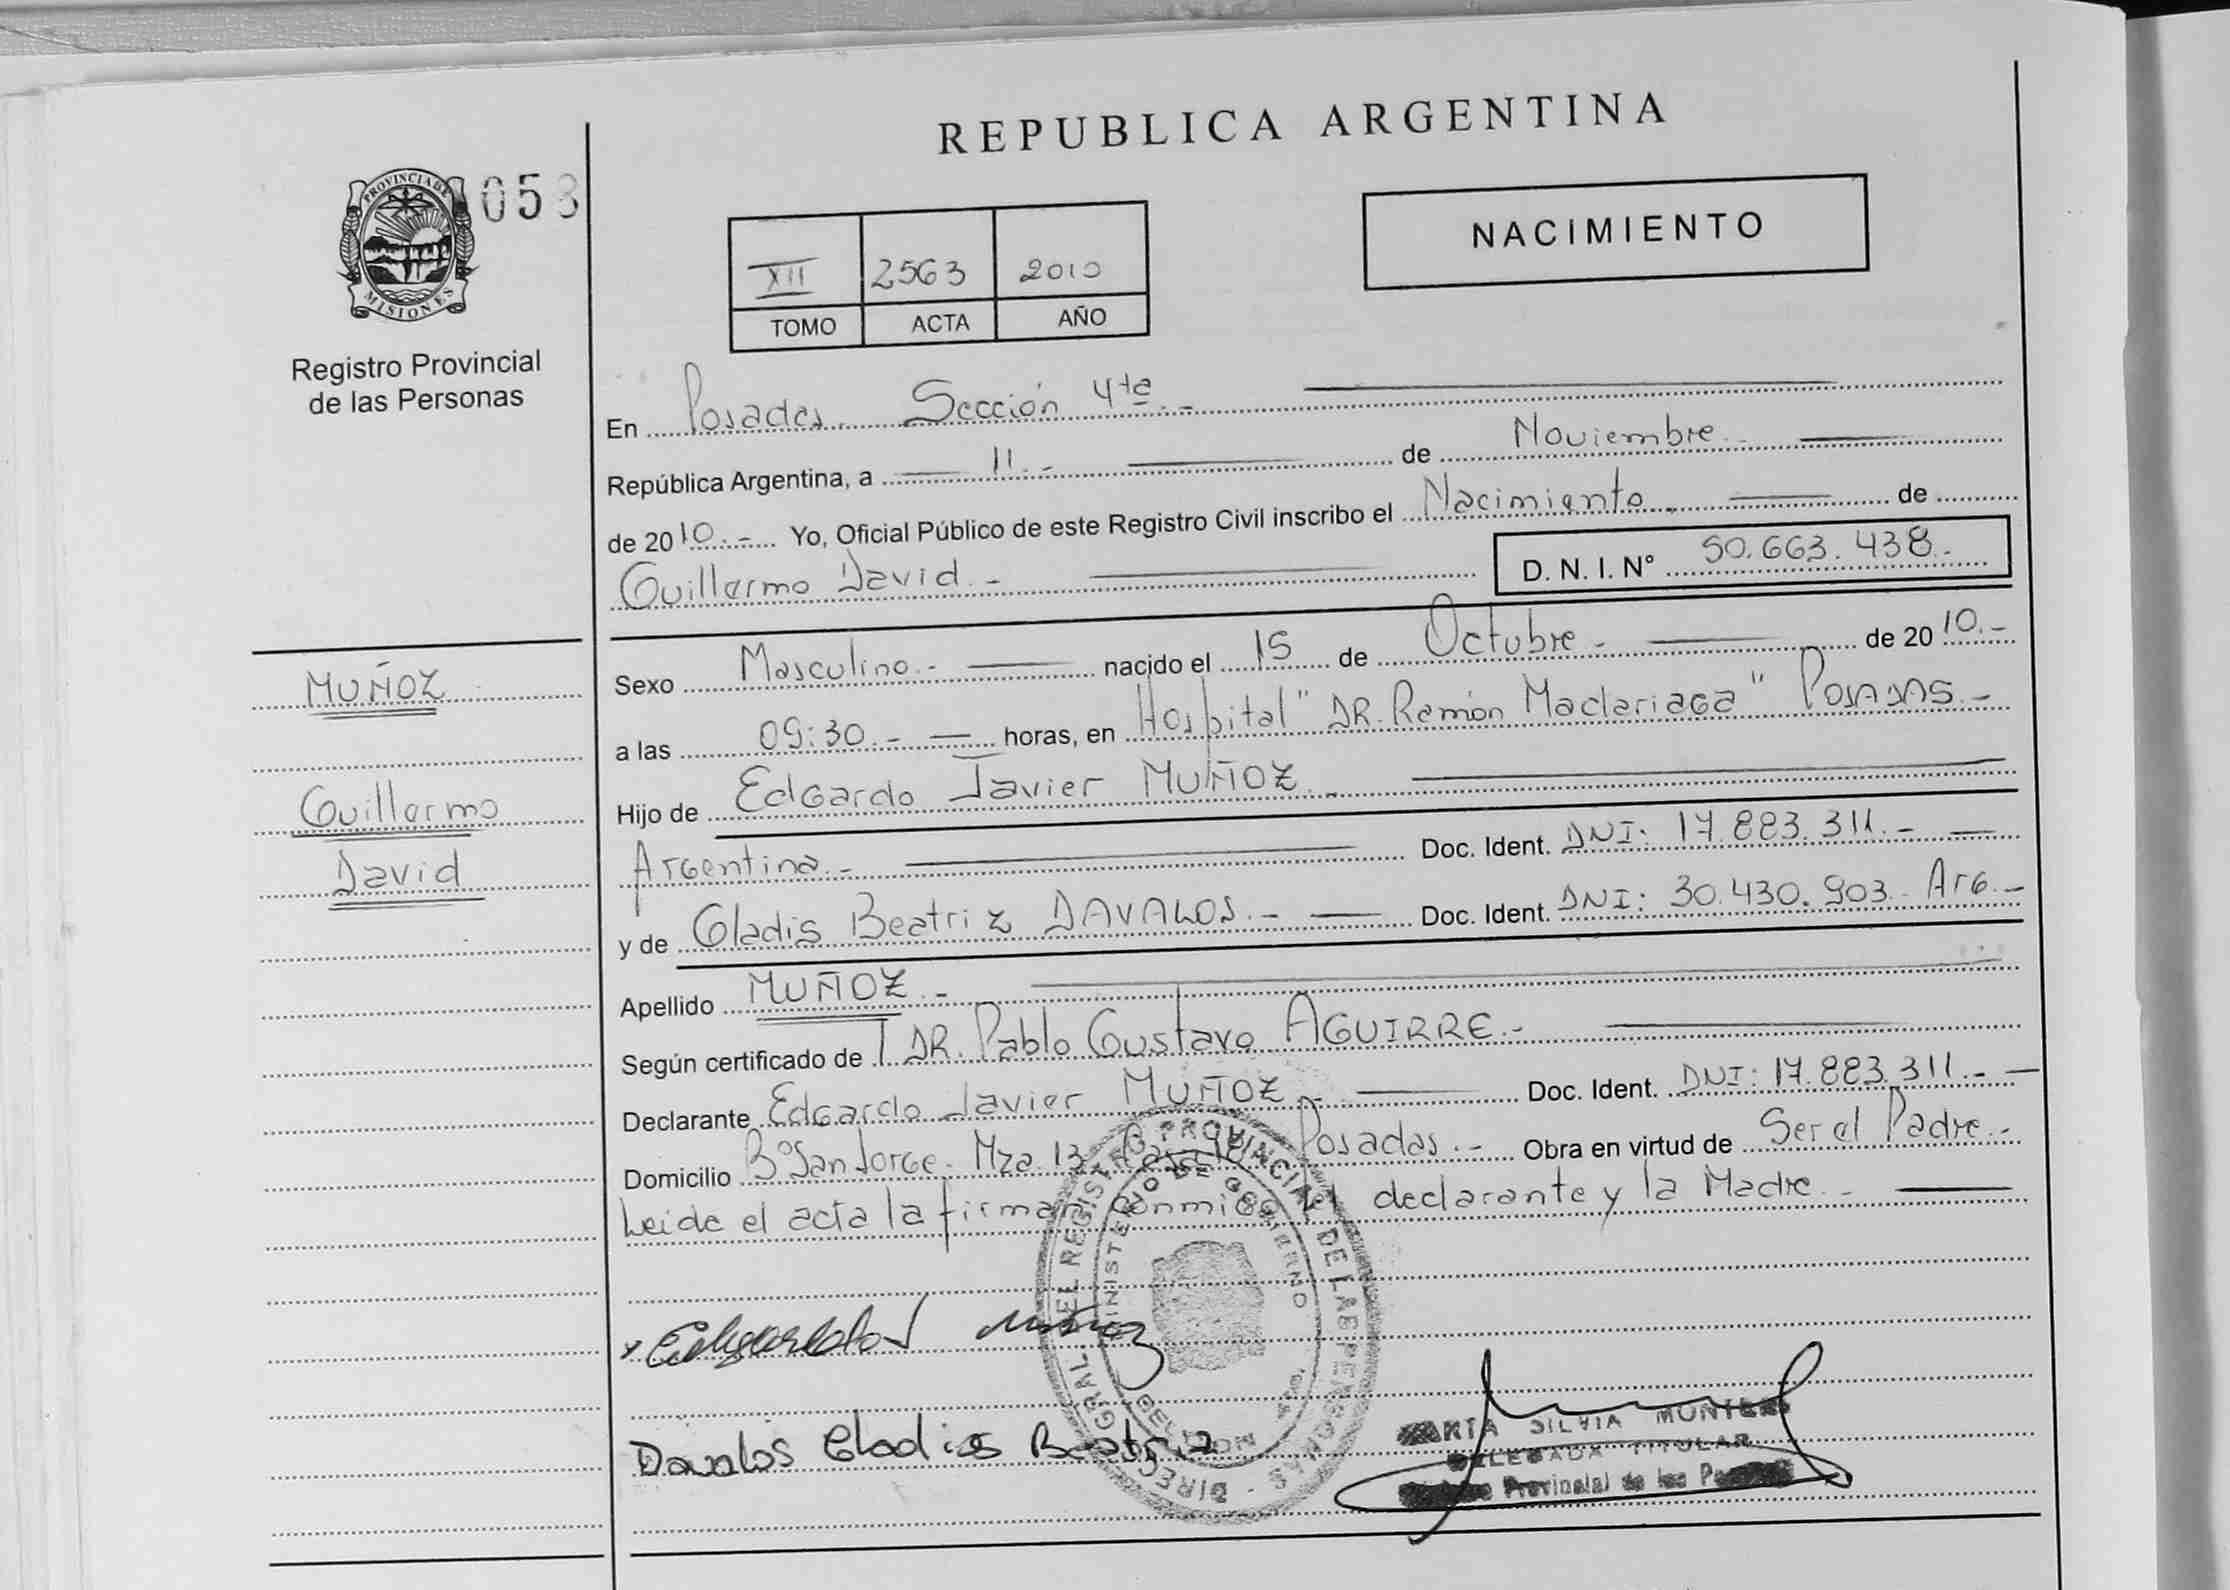 REPUBLICA ARGENTINA
PROVINCIA DE
MISIONES
053
Registro Provincial
de las Personas
NACIMIENTO
XII 2563 2010
TOMO ACTA AÑO
En Posadas. Sección 4ta.-
República Argentina, a 11.- de Noviembre.-
de 2010.- Yo, Oficial Público de este Registro Civil inscribo el Nacimiento. de
Guillermo David.- D. N. I. N° 50.663.438.-
MUÑOZ
Guillermo
David
Sexo Masculino.- nacido el 15 de Octubre.- de 2010.-
a las 09:30.- horas, en Hospital "DR. Ramón Madariaga" Posadas.-
Hijo de Edgardo Javier MUÑOZ.-
Argentina.- Doc. Ident. DNI: 17.883.311.-
y de Gladis Beatriz DAVALOS.- Doc. Ident. DNI: 30.430.903.- Arg.-
Apellido MUÑOZ.-
Según certificado de DR. Pablo Gustavo AGUIRRE.-
Declarante Edgardo Javier MUÑOZ.- Doc. Ident. DNI: 17.883.311.-
Domicilio B° San Jorge. Mza. 13 Posadas.- Obra en virtud de Ser el Padre.-
Leida el acta la firman conmigo el declarante y la Madre.-
Edgardo J Muñoz
Davalos Gladis Beatriz
DIRECC GRAL. DEL REGISTRO PROVINCIAL DE LAS PERSONAS
MINISTERIO DE GOBIERNO
SILVIA
DELEGADA TITULAR
Provincial de las